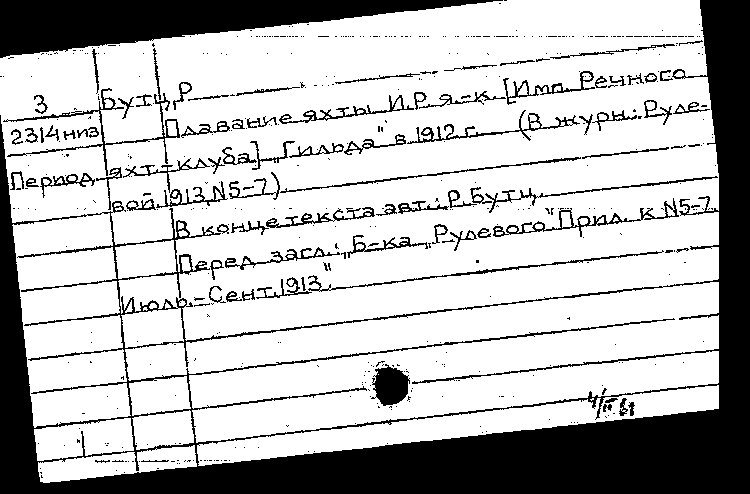 3 Бутц, Р
2314 низ Плавание яхты И.Р.я.-к. [Имп. Речного
Период. яхт.-клуба] „Гильда" в 1912 г. (В журн.: Руле-
вой. 1913, N5-7).
В конце текста авт.: Р. Бутц.
Перед загл.: „Б-ка „Рулевого". Прил. к N5-7.
Июль.-Сент. 1913".
4/II 61